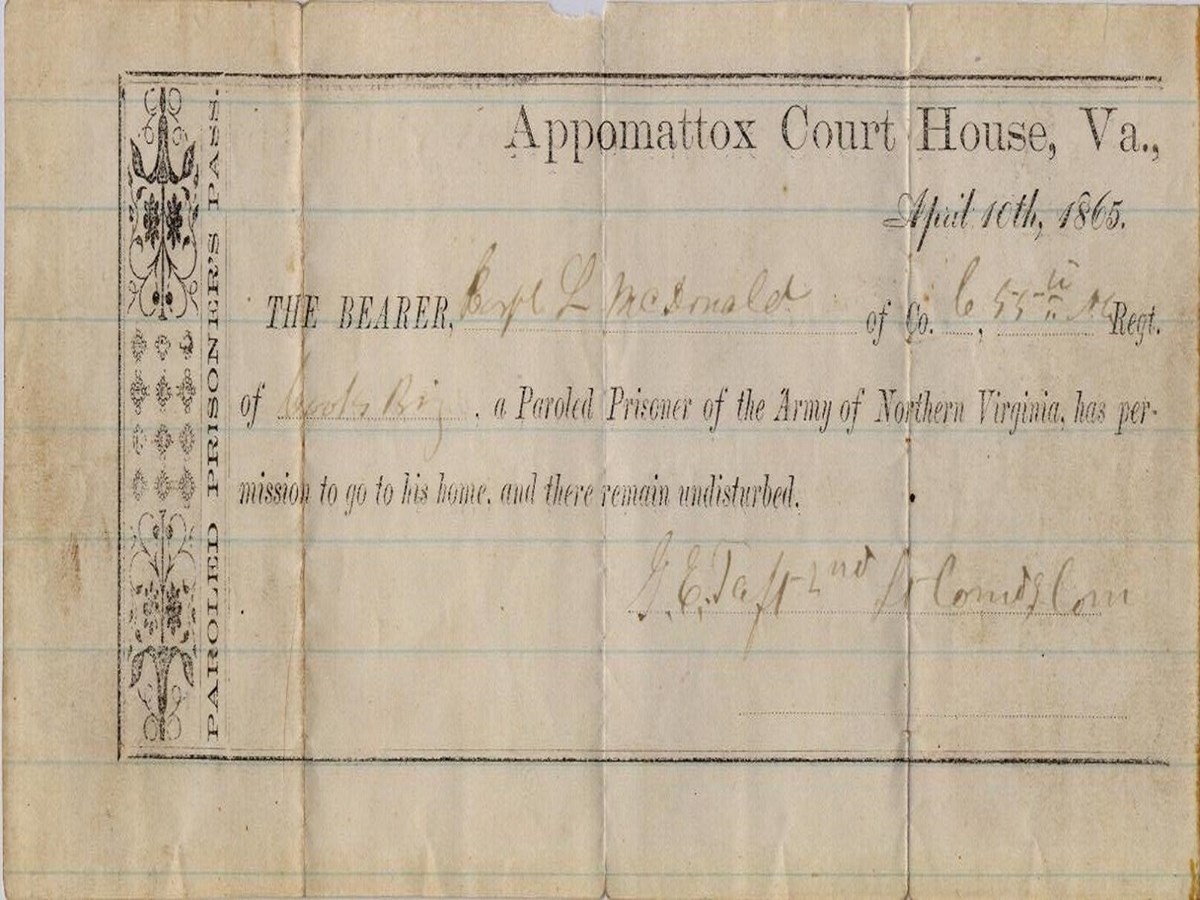 PAROLED PRISONER'S PASS.
Appomattox Court House, Va.,
April 10th, 1865.
THE BEARER, Corpl L McDonald of Co. C, 55th Regt.
of Cooks Brig, a Paroled Prisoner of the Army of Northern Virginia, has per-
mission to go to his home, and there remain undisturbed.
J. E. Taft 2nd Lt Comdg Com